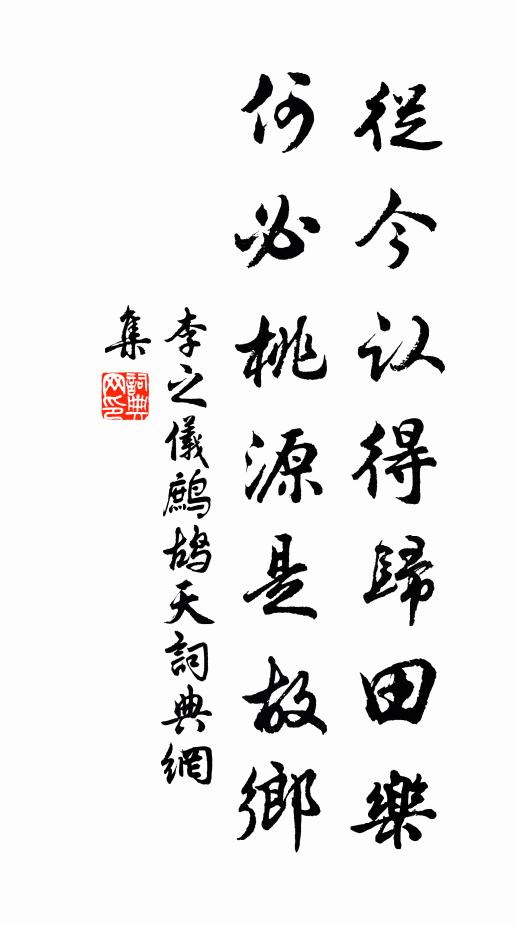 從今认得歸田樂
何必桃源是故鄉
李之儀鷓鴣天詞典網
集
詞典
网印